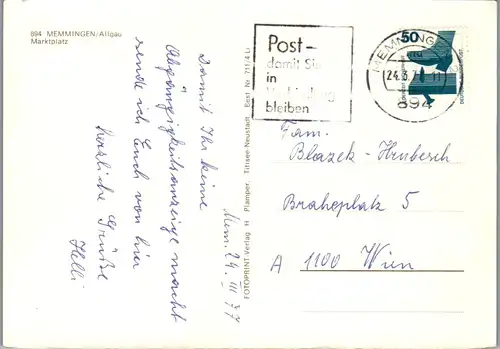 894 MEMMINGEN/Allgäu
Marktplatz
Damit Ihr keine
Abgängigkeitsanzeige macht
sende ich Euch von hier
herzliche Grüße
Helli
Mem. 24. III 77
FOTOPRINT-Verlag H. Pfamper, Titisee-Neustadt, Best. Nr. 711/4 Li
Post-
damit Sie
in
Verbindung
bleiben
MEMMINGEN
24.3.7
894
50
Fam.
Blazek-Hrubesch
Braheplatz 5
A 1100 Wien